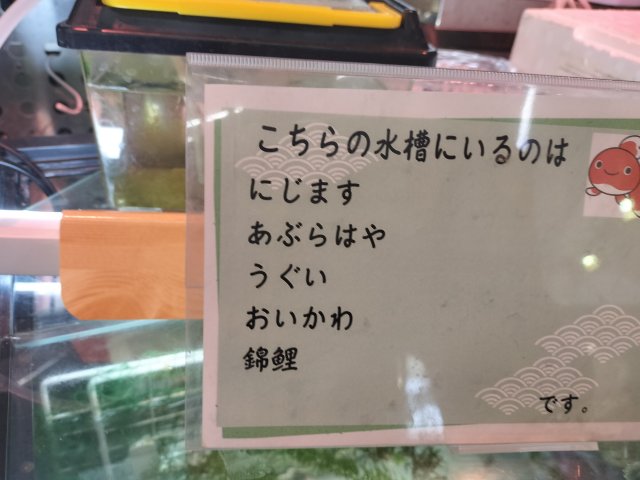 こちらの水槽にいるのは
にじます
あぶらはや
うぐい
おいかわ
錦鯉
です。